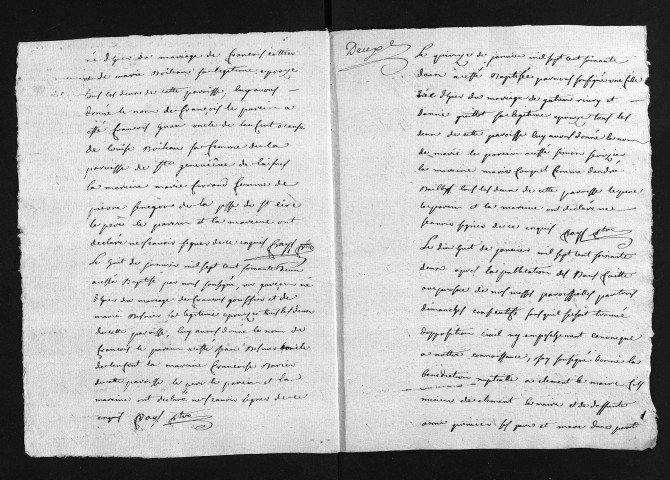 né d'hier du mariage de francois
et de marie Boileau sa legitime epouze
tous les deux de cette paroisse, luy avons
donné le nom de francois le parein a
esté francois oncle de l'enfant a cause
de louise Boileau sa femme de la
paroisse de ste geneviéve
la mareine marie femme de
pierre de la psse de st
le pere le parein et la mareine ont
declaré ne scavoir signer de ce enquis ptre
Le huit de janvier mil sept cent soixante deux
a esté Baptisé par nous soussigné, un garcon né
d'hier du mariage de francois et de
marie sa legitime epouze tous les deux
de cette paroisse, luy avons donné le nom de
francois le parein a esté oncle
de l'enfant la mareine francoise
de cette paroisse le pere le parein et la
mareine ont declaré ne scavoir signer de ce
enquis ptre
Deux e
Le quinze de janvier mil sept cent soixante
deux a esté Baptisée par nous soussigné une fille
née d'hier du mariage de et
d'anne guillot sa legitime epouze tous les
deux de cette paroisse luy avons donné le nom
de marie le parein a esté simon
la mareine marie femme d'andré
tous les deux de cette paroisse le pere
le parein et la mareine ont declaré ne
scavoir signer de ce enquis ptre
Le dix huit de janvier mil sept cent soixante
deux apres la publication des Bans faitte
au prosne de nos messes paroissialles par trois
dimanches consecutifs sans qu'il se soit trouvé
d'opposition civil ny empeschement canonique
a nottre connoissance, j'ay soussigné donné la
benediction nuptialle a clement le maire fils
mineur de clement le maire et de deffunte
anne ses pere et mere d'une part